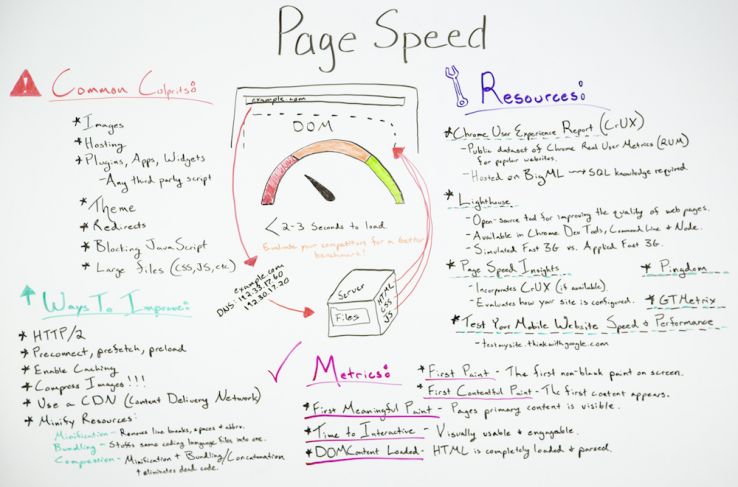 Page Speed
Common Culprits:
* Images
* Hosting
* Plugins, Apps, Widgets
- Any third party script
* Theme
* Redirects
* Blocking JavaScript
* Large files (CSS, JS, etc)
Ways To Improve:
* HTTP/2
* Preconnect, prefetch, preload
* Enable Caching
* Compress Images!!!
* Use a CDN (Content Delivery Network)
* Minify Resources:
Minification - Removes line breaks, spaces & abbrv.
Bundling - Stuffs same coding language files into one.
Compaction - Minification + Bundling/Concatenation
+ eliminates dead code.
example.com
DOM
< 2-3 Seconds to load.
Evaluate your competitors for a better
benchmark!
example.com
DNS: 192.38.17.60
192.30.17.20
Server
Files
HTML
CSS
JS
Resources:
* Chrome User Experience Report (CrUX)
- Public dataset of Chrome Real User Metrics (RUM)
for popular websites.
- Hosted on BigML → SQL knowledge required
* Lighthouse
- Open-source tool for improving the quality of web pages.
- Available in Chrome Dev Tools, Command Line & Node.
- Simulated Fast 3G vs. Applied Fast 3G.
* Page Speed Insights
- Incorporates CrUX (if available)
- Evaluates how your site is configured.
* Pingdom
* GTMetrix
* Test Your Mobile Website Speed & Performance
- testmysite.thinkwithgoogle.com
Metrics:
* First Paint - The first non-blank paint on screen.
* First Contentful Paint - The first content appears.
* First Meaningful Paint - Pages primary content is visible.
* Time to Interactive - Visually usable & engagable.
* DOMContent Loaded - HTML is completely loaded & parsed.